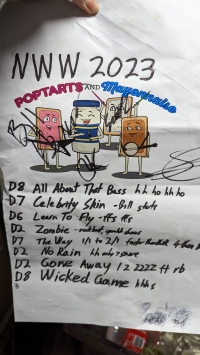 NWW 2023
POPTARTS AND Mayonnaise
D8 All About That Bass hh ho hh ho
D7 Celebrity Skin - Bill starts
D6 Learn To Fly - ffs ffs
D2 Zombie
D7 The Way 1/1 to 2/1
D2 No Rain hh only
D2 Gone Away 12 2222 ft rb
D8 Wicked Game hhhs